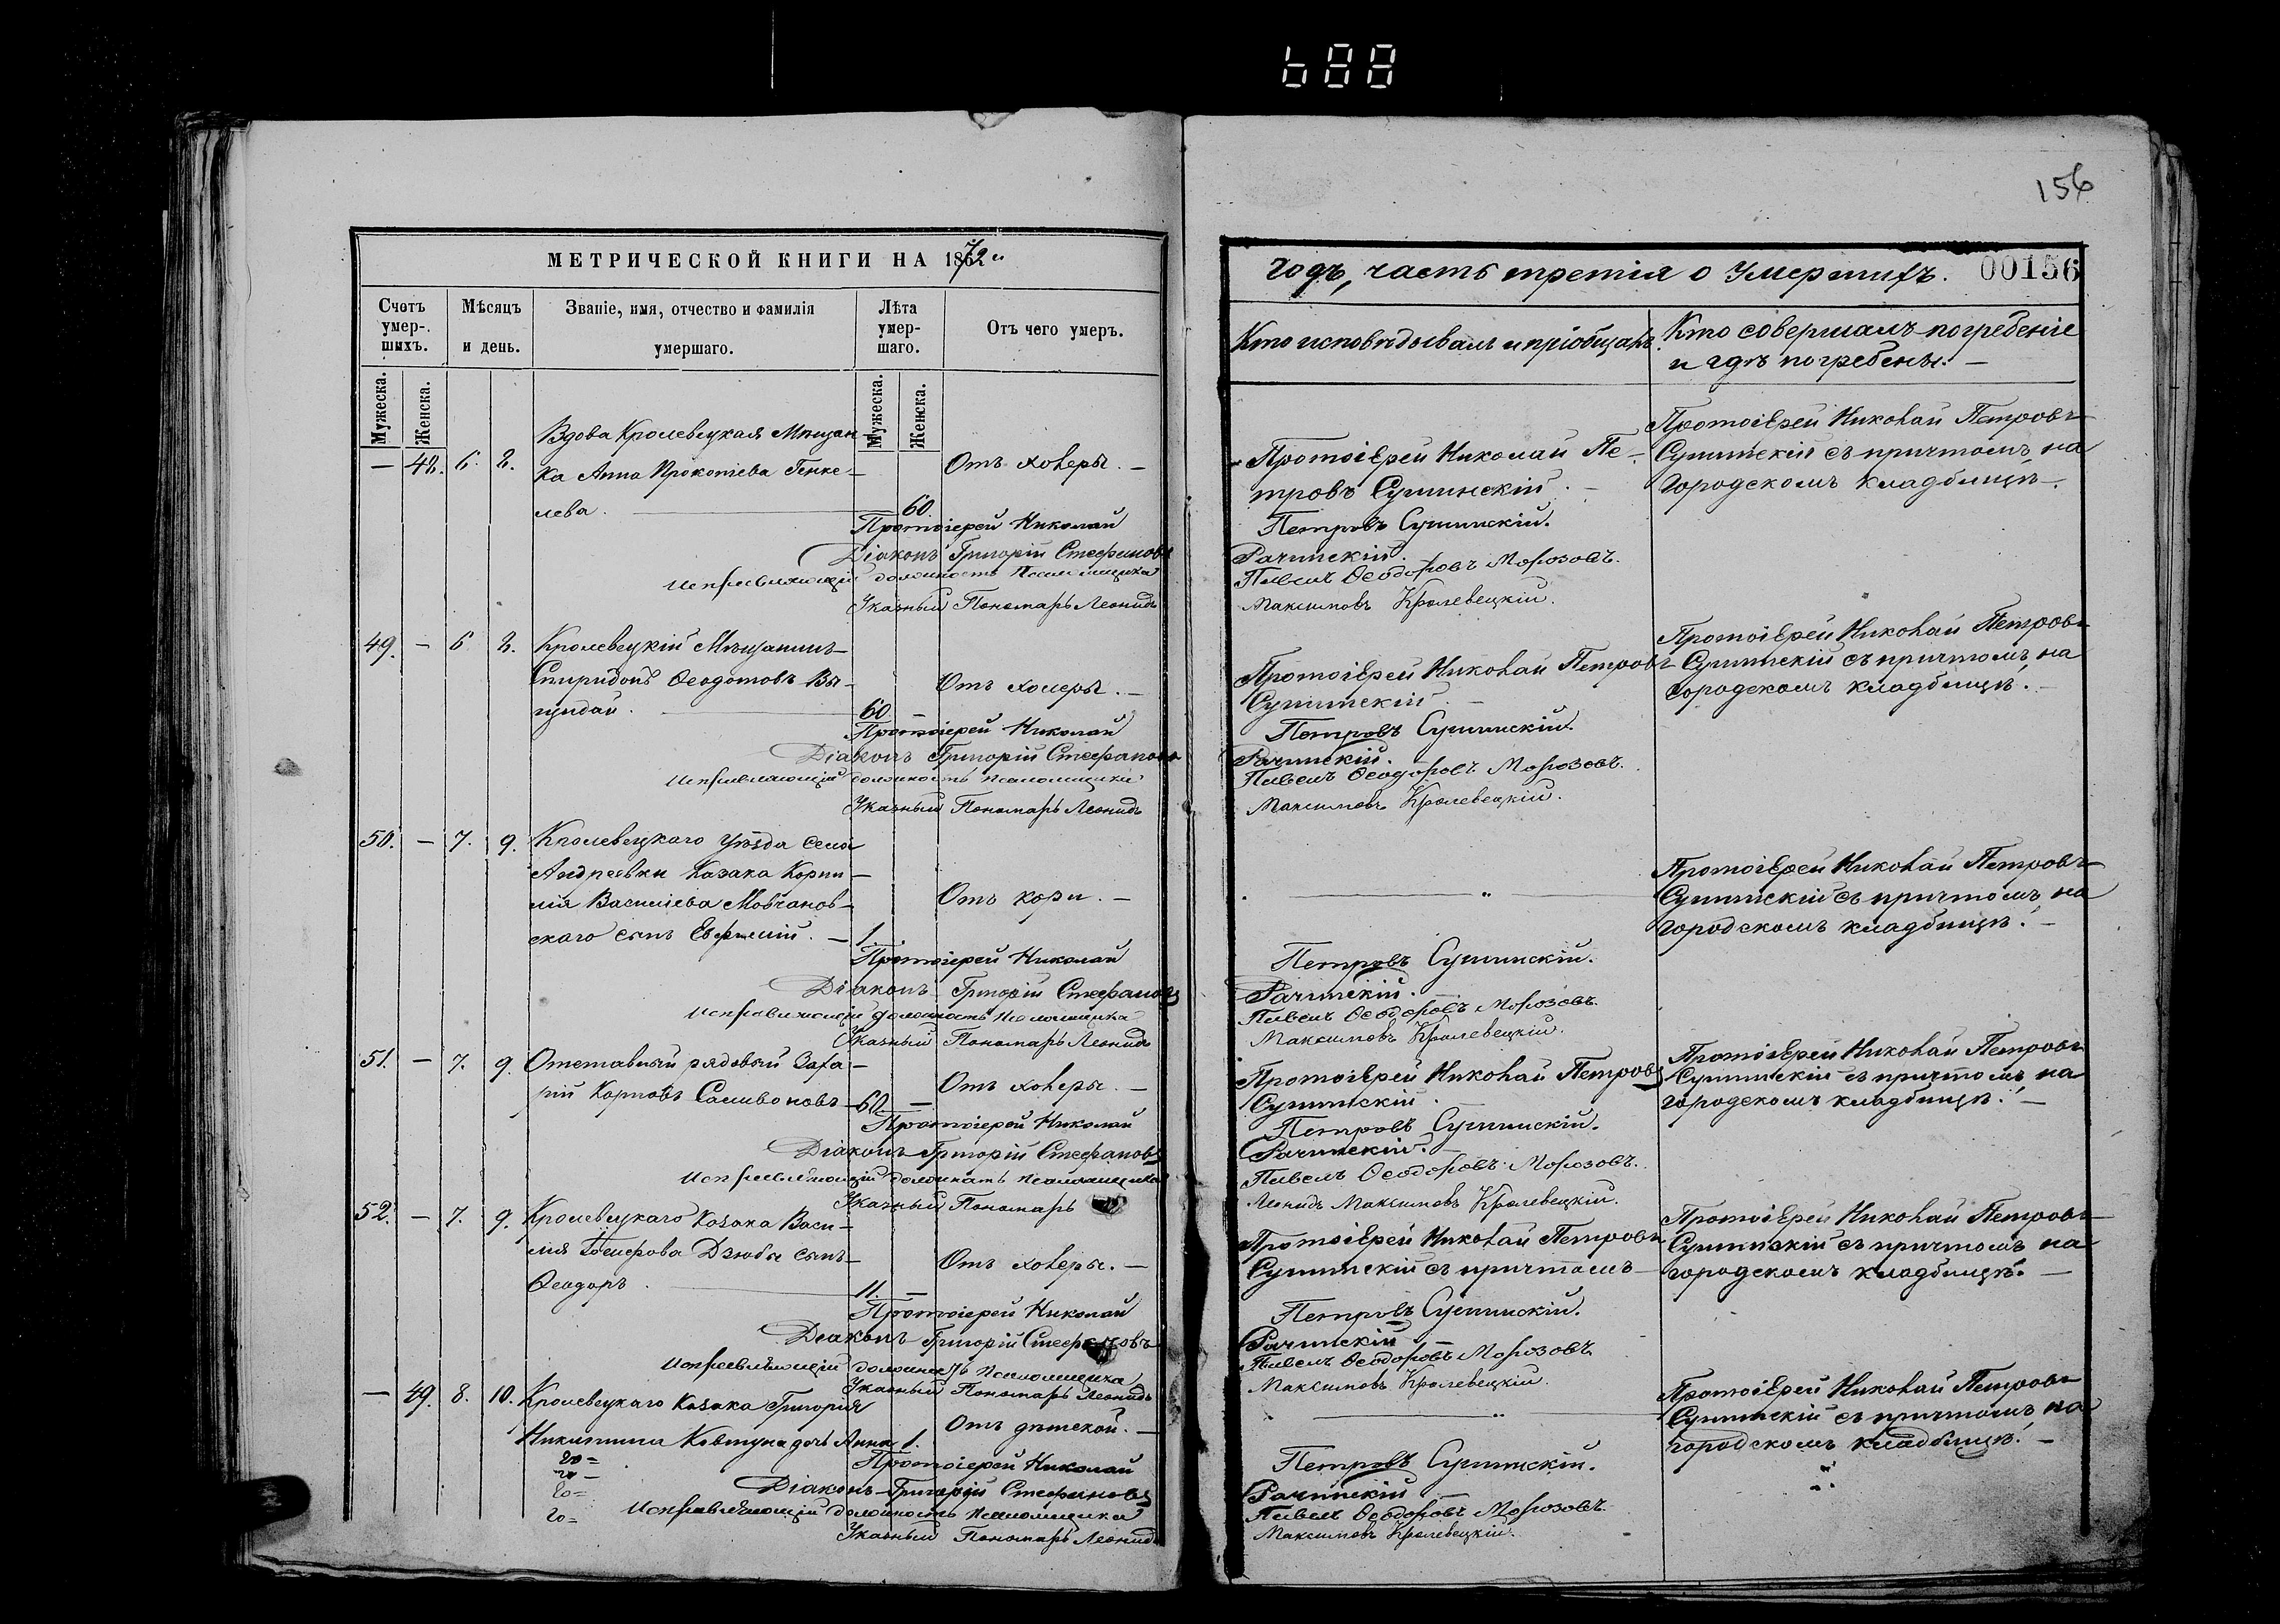 688
156
МЕТРИЧЕСКОЙ КНИГИ НА 1872
годъ, часть третія о Умершихъ. 00156
Счетъ умер-
шихъ.
Мѣсяцъ
и день.
Званіе, имя, отчество и фамилія
умершаго.
Лѣта
умер-
шаго.
Отъ чего умеръ.
Кто исповѣдывалъ и пріобщалъ.
Кто совершалъ погребеніе
и гдѣ погребены. —
Мужеска.
Женска.
Мужеска.
Женска.
— 48. 6. 8.
Вдова Кролевецкая Мѣщан-
ка Анна Прокопіева
лева. — 60.
Отъ холеры. —
Протоіерей Николай Пе-
тровъ Сушинскій. —
Протоіерей Николай Петровъ
Сушинскій съ причтомъ, на
городскомъ кладбищѣ. —
Протоіерей Николай Петровъ Сушинскій.
Діаконъ Григорій Стефановъ Рачинскій.
Исправляющій должность Псаломщика Павелъ Ѳеодоровъ Морозовъ.
Указный Пономарь Леонидъ Максимовъ Кролевецкій.
49. — 6 8.
Кролевецкій Мѣщанинъ
Спиридонъ Ѳеодотовъ Вы-
гундай. — 60 —
Отъ холеры. —
Протоіерей Николай Петровъ
Сушинскій. —
Протоіерей Николай Петровъ
Сушинскій съ причтомъ, на
городскомъ кладбищѣ. —
Протоіерей Николай Петровъ Сушинскій.
Діаконъ Григорій Стефановъ Рачинскій.
Исправляющій должность Псаломщика Павелъ Ѳеодоровъ Морозовъ.
Указный Пономарь Леонидъ Максимовъ Кролевецкій.
50. — 7. 9.
Кролевецкаго уѣзда села
Андреевки Козака Корни-
лія Василіева Мовчанов-
скаго сынъ Евфимій. — 1.
Отъ кори. —
Протоіерей Николай Петровъ
Сушинскій съ причтомъ, на
городскомъ кладбищѣ. —
Протоіерей Николай Петровъ Сушинскій.
Діаконъ Григорій Стефановъ Рачинскій.
Исправляющій должность Псаломщика Павелъ Ѳеодоровъ Морозовъ.
Указный Пономарь Леонидъ Максимовъ Кролевецкій.
51. — 7. 9.
Отставный рядовый Заха-
рій Карповъ Саливоновъ — 60 —
Отъ холеры. —
Протоіерей Николай Петровъ
Сушинскій.
Протоіерей Николай Петровъ
Сушинскій съ причтомъ на
городскомъ кладбищѣ. —
Протоіерей Николай Петровъ Сушинскій.
Діаконъ Григорій Стефановъ Рачинскій.
Исправляющій должность Псаломщика Павелъ Ѳеодоровъ Морозовъ.
Указный Пономарь Леонидъ Максимовъ Кролевецкій.
52. — 7. 9.
Кролевецкаго Козака Васи-
лія Дзюбы сынъ
Ѳеодоръ. — 11. —
Отъ холеры. —
Протоіерей Николай Петровъ
Сушинскій съ причтомъ
Протоіерей Николай Петровъ
Сушинскій съ причтомъ на
городскомъ кладбищѣ. —
Протоіерей Николай Петровъ Сушинскій.
Діаконъ Григорій Стефановъ Рачинскій
Исправляющій должность Псаломщика Павелъ Ѳеодоровъ Морозовъ
Указный Пономарь Леонидъ Максимовъ Кролевецкій.
— 49. 8. 10.
Кролевецкаго Козака Григорія
Никитина Ковтуна дочь Анна 1.
Отъ дѣтской. —
Протоіерей Николай Петровъ
Сушинскій съ причтомъ, на
городскомъ кладбищѣ. —
Протоіерей Николай Петровъ Сушинскій.
Діаконъ Григорій Стефановъ Рачинскій
Исправляющій должность Псаломщика Павелъ Ѳеодоровъ Морозовъ.
Указный Пономарь Леонидъ Максимовъ Кролевецкій.